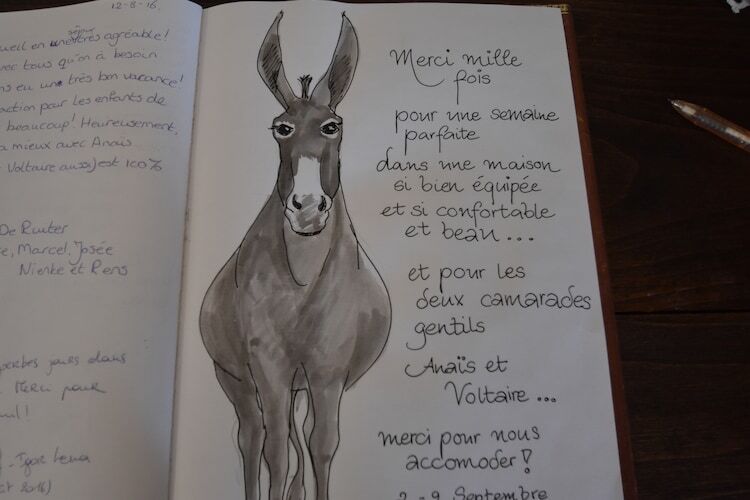 12-8-16.
séjour
ueil en une très agréable!
vec tous qu'on à besoin
ns eu un très bon vacance!
action pour les enfants de
beaucoup! Heureusement,
a mieux avec Anaïs
Voltaire aussi) est 100%
De Ruiter
re, Marcel, Josée
Nienke et Rens
perbes jours dans
Merci pour
Igor
2016)
Merci mille
fois
pour une semaine
parfaite
dans une maison
si bien équipée
et si confortable
et beau...
et pour les
deux camarades
gentils
Anaïs et
Voltaire...
merci pour nous
accomoder!
2-9 Septembre